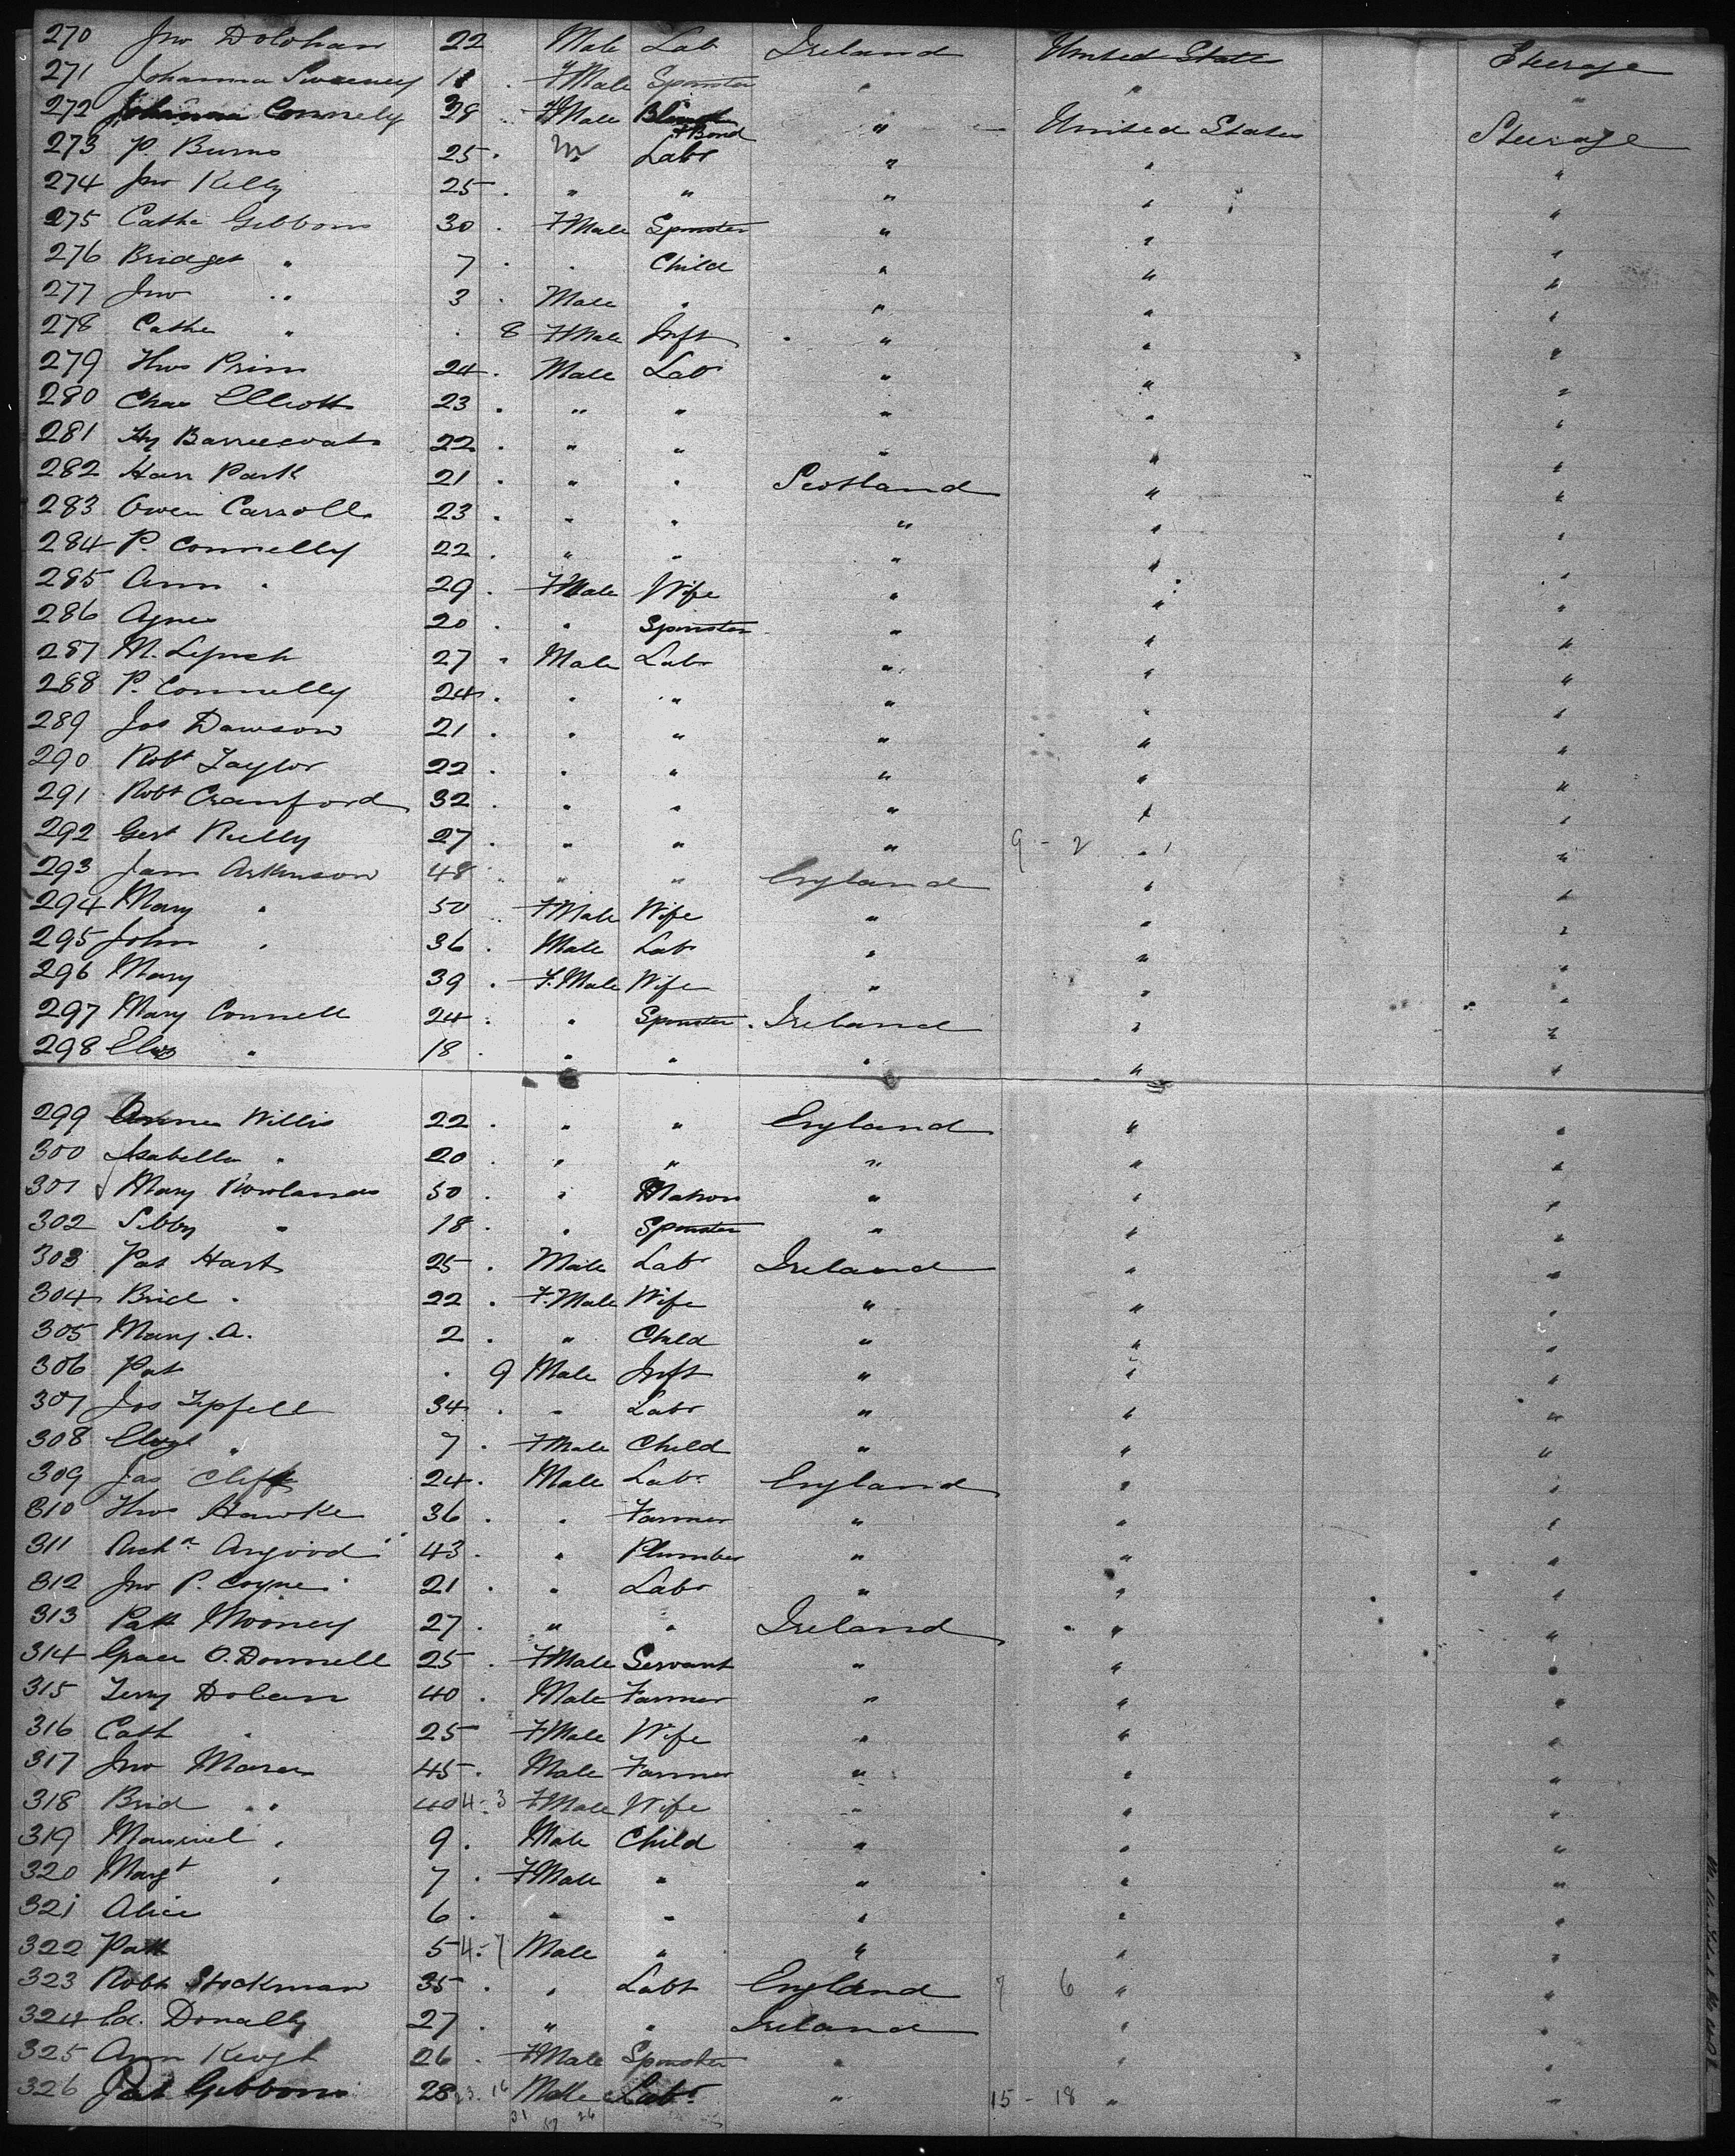 270 Jno Dolohan 22 Male Lab Ireland United State Steerage
271 Johanna Sweeney 11 . FMale Spinster " " "
272 Johanna Connely 38 FMale & Bond " United States Steerage
273 P. Burns 25 . M Labr " " "
274 Jno Kelly 25 . " " " " "
275 Cathe Gibbons 30 . FMale Spinster " " "
276 Bridget " 7 . . Child " " "
277 Jno " 3 . Male " " " "
278 Cathe " . 8 FMale Inft " " "
279 Thos Prim 24 . Male Labr " " "
280 Chas Elliott 23 . " " " " "
281 Hy 22 . " " " " "
282 Harr Park 21 . " " Scotland " "
283 Owen Carroll 23 . " " " " "
284 P. Connelly 22 . " " " " "
285 Ann " 29 . FMale Wife " " "
286 Agnes 20 . " Spinster " " "
287 M. Lynch 27 " Male Labr " " "
288 P. Connelly 24 . " " " " "
289 Jos Dawson 21 . " " " " "
290 Robt Taylor 22 . " " " " "
291 Robt Cranford 32 . " " " " "
292 Gert Reilly 27 . " " " 9 - 2 " "
293 Jam Atkinson 48 " " " England " "
294 Mary " 50 " FMale Wife " " "
295 John " 36 . Male Labr " " "
296 Mary 39 . F.Male Wife " " "
297 Mary Connell 24 . " Spinster Ireland " "
298 Eliz " 18 . " " " " "
299 Anna Willis 22 . " " England " "
300 Isabella " 20 . " " " " "
301 Mary Rowlands 50 . " Matron " " "
302 Sibby " 18 . " Spinster " " "
303 Pat Hart 25 . Male Labr Ireland " "
304 Brid " 22 . F.Male Wife " " "
305 Mary A. 2 . " Child " " "
306 Pat . 9 Male Inft " " "
307 Jos Tipfell 34 . " Labr " " "
308 " 7 . FMale Child " " "
309 Jas Cliff 24 . Male Labr England " "
310 Thos Hawke 36 . " Farmer " " "
311 43 . " Plumber " " "
312 Jno P. Coyne 21 . " Labr " " "
313 Patk Mooney 27 . " " Ireland " "
314 Grace O.Donnell 25 . FMale Servant " " "
315 Terry Dolan 40 . Male Farmer " " "
316 Cath " 25 FMale Wife " " "
317 Jno 45 . Male Farmer " " "
318 Brid " 40 4-3 FMale Wife " " "
319 " 9 . Male Child " " "
320 Margt " 7 . FMale " " " "
321 Alice 6 . " " " " "
322 Patk 5 4-7 Male " " " "
323 Robt Stockman 35 . " Labr England 7 6 " "
324 Ed. Donally 27 . " " Ireland " "
325 Ann Keogh 26 . FMale Spinster " " "
326 Pat Gibbons 28 Male Labr " 15 - 18 " "